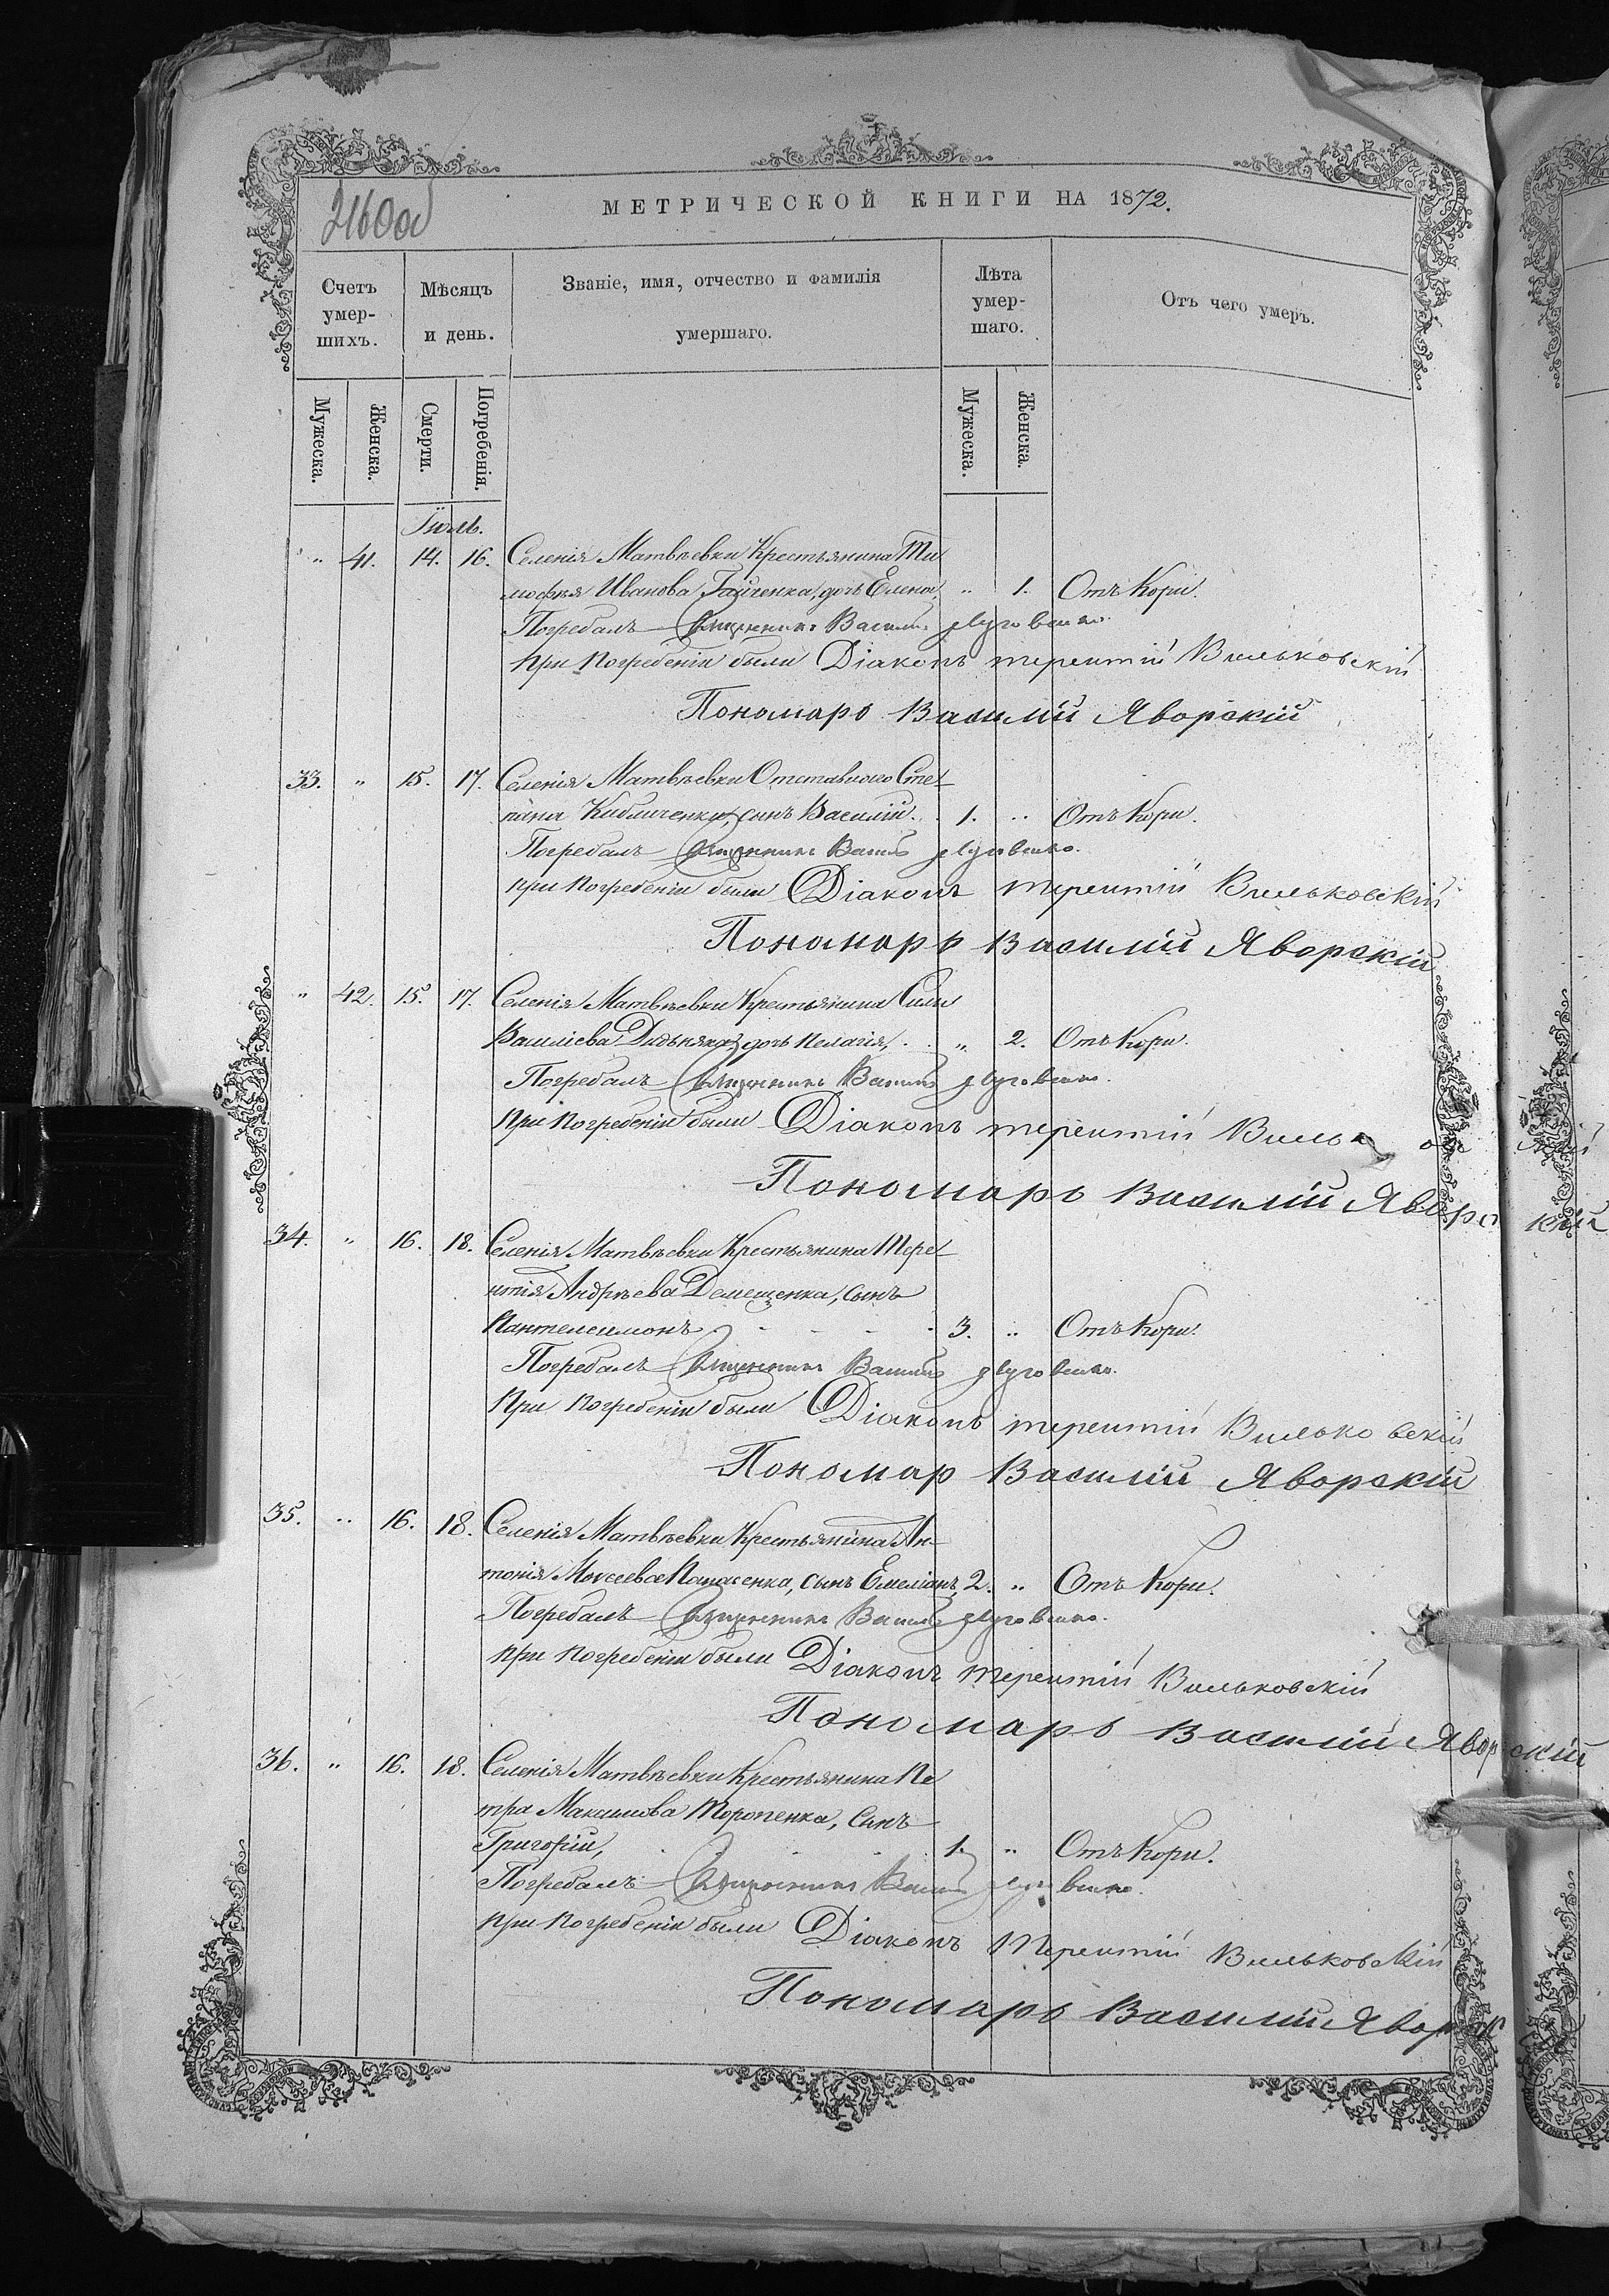 МЕТРИЧЕСКОЙ КНИГИ НА 1872.
Счетъ умер-шихъ.
Мѣсяцъ и день.
Званіе, имя, отчество и фамилія умершаго.
Лѣта умер-шаго.
Отъ чего умеръ.
Мужеска. Женска. Смерти. Погребенія. Мужеска. Женска.
Іюль.
" 41. 14. 16. Селенія Матвѣевки Крестьянина Ти
мофея Иванова дочь Елена, " 1. Отъ Кори.
Погребалъ Священникъ Василій
при погребеніи были Діаконъ терентій Вильковскій
Пономарь Василій Яворскій
33. " 15. 17. Селенія Матвѣевки Отставного Сте-
пана сынъ Василій. 1. " Отъ Кори.
Погребалъ Священникъ Василій
при погребеніи были Діаконъ терентій Вильковскій
Пономарь Василій Яворскій
" 42. 15. 17. Селенія Матвѣевки Крестьянина Силы
Василіева дочь Пелагія, " 2. Отъ Кори.
Погребалъ Священникъ Василій
При погребеніи были Діаконъ терентій
Пономарь Василій Яворскій
34. " 16. 18. Селенія Матвѣевки Крестьянина Тере-
нтія Андрѣева Демещенка, сынъ
Пантелеимонъ 3. " Отъ Кори.
Погребалъ Священникъ Василій
При погребеніи были Діаконъ терентій Вильковскій
Пономар Василій Яворскій
35. " 16. 18. Селенія Матвѣевки Крестьянина Ан-
тонія Моѵсеева сынъ Емеліанъ, 2. " Отъ Кори.
Погребалъ Священникъ Василій
при погребеніи были Діаконъ терентій Вильковскій
Пономарь Василій Яворскій
36. " 16. 18. Селенія Матвѣевки Крестьянина Пе
тра Максимова Торопенка, сынъ
Григорій, 1. " Отъ Кори.
Погребалъ Священникъ Василій
при погребеніи были Діаконъ Терентій Вильковскій
Пономарь Василій